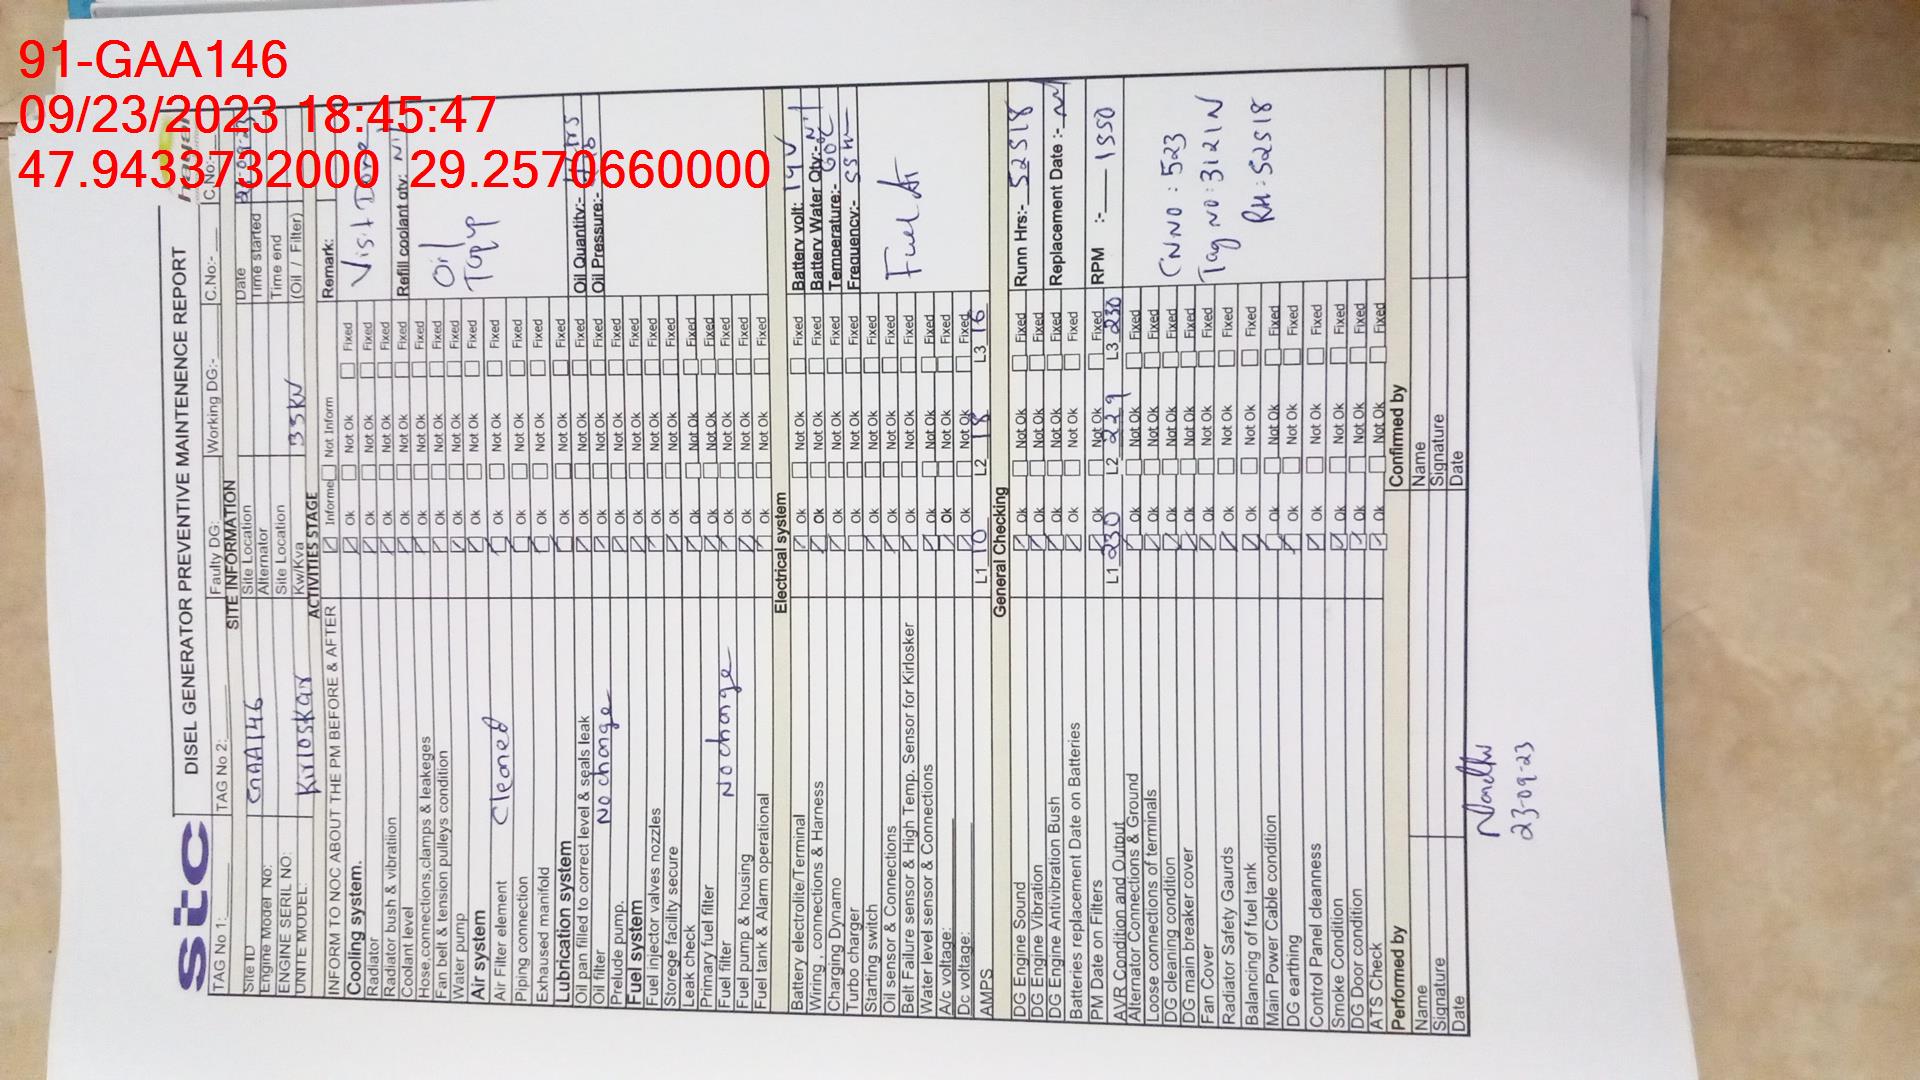 91-GAA146
09/23/2023 18:45:47
47.9433732000 29.2570660000
stc
DISEL GENERATOR PREVENTIVE MAINTENCE REPORT
TAG No 1: TAG No 2: Faulty DG: Working DG:- C.No:- C.No:-
SITE INFORMATION
Site ID GAA146 Site Location Date
Engine Model No: Alternator Time started
ENGINE SERIL NO: Site Location Time end
UNITE MODEL: Kirloskar Kw/Kva 33KW (Oil / Filter)
ACTIVITIES STAGE
INFORM TO NOC ABOUT THE PM BEFORE & AFTER Informe Not Inform Remark:
Cooling system. Ok Not Ok Fixed Visit Done
Radiator Ok Not Ok Fixed
Radiator bush & vibratiion Ok Not Ok Fixed
Coolant level Ok Not Ok Fixed Refill coolant qty: Nil
Hose,connections,clamps & leakeges Ok Not Ok Fixed
Fan belt & tension pulleys condition Ok Not Ok Fixed Oil
Water pump Ok Not Ok Fixed Topup
Air system Ok Not Ok Fixed
Air Filter element Cleaned Ok Not Ok Fixed
Piping connection Ok Not Ok Fixed
Exhaused manifold Ok Not Ok Fixed
Lubrication system Ok Not Ok Fixed
Oil pan filled to correct level & seals leak Ok Not Ok Fixed Oil Quantity:-
Oil filter No change Ok Not Ok Fixed Oil Pressure:-
Prelude pump. Ok Not Ok Fixed
Fuel system Ok Not Ok Fixed
Fuel injector valves nozzles Ok Not Ok Fixed
Storege facility secure Ok Not Ok Fixed
Leak check Ok Not Ok Fixed
Primary fuel filter Ok Not Ok Fixed
Fuel filter No change Ok Not Ok Fixed
Fuel pump & housing Ok Not Ok Fixed
Fuel tank & Alarm operational Ok Not Ok Fixed
Electrical system
Battery electrolite/Terminal Ok Not Ok Fixed Battery volt: 14V
Wiring , connections & Harness Ok Not Ok Fixed Battery Water Qty:- Nil
Charging Dynamo Ok Not Ok Fixed Temperature:- 60°C
Turbo charger Ok Not Ok Fixed Frequency:-
Starting switch Ok Not Ok Fixed
Oil sensor & Connections Ok Not Ok Fixed Fuel
Belt Failure sensor & High Temp. Sensor for Kirlosker Ok Not Ok Fixed
Water level sensor & Connections Ok Not Ok Fixed
A/c voltage: Ok Not Ok Fixed
Dc voltage: Ok Not Ok Fixed
AMPS L1 10 L2 18 L3 16
General Checking
DG Engine Sound Ok Not Ok Fixed Runn Hrs:- 52518
DG Engine Vibration Ok Not Ok Fixed
DG Engine Antivibration Bush Ok Not Ok Fixed Replacement Date :-
Batteries replacement Date on Batteries Ok Not Ok Fixed
PM Date on Filters Ok Not Ok Fixed RPM :- 1550
AVR Condition and Output L1 230 L2 229 L3 230
Alternator Connections & Ground Ok Not Ok Fixed
Loose connections of terminals Ok Not Ok Fixed
DG cleaning condition Ok Not Ok Fixed CNNO : 523
DG main breaker cover Ok Not Ok Fixed
Fan Cover Ok Not Ok Fixed Tag NO: 3121N
Radiator Safety Gaurds Ok Not Ok Fixed
Balancing of fuel tank Ok Not Ok Fixed RH: 52518
Main Power Cable condition Ok Not Ok Fixed
DG earthing Ok Not Ok Fixed
Control Panel cleanness Ok Not Ok Fixed
Smoke Condition Ok Not Ok Fixed
DG Door condition Ok Not Ok Fixed
ATS Check Ok Not Ok Fixed
Performed by Confirmed by
Name Name
Signature Signature
Date Date
23-09-23